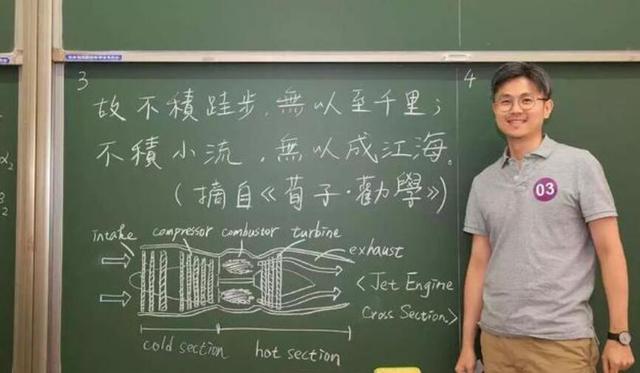 3
故不積跬步，無以至千里；
不積小流，無以成江海。
（摘自《荀子·勸學》）
intake compressor combustor turbine
exhaust
<Jet Engine
Cross Section>
cold section hot section
4
03
2